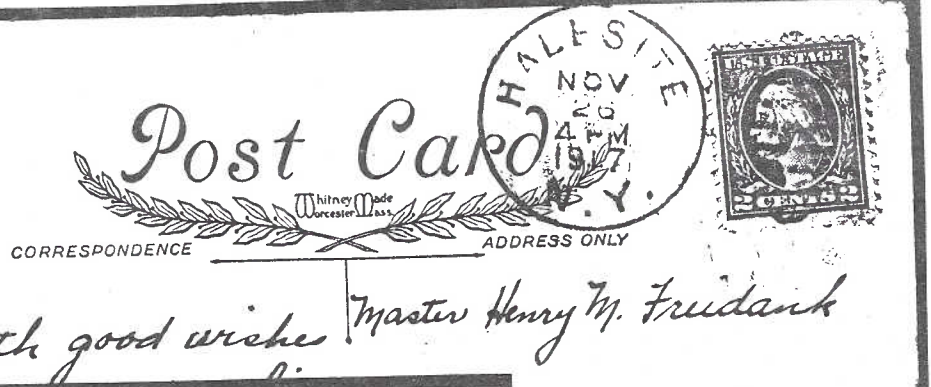 HALFSITE
NOV
26
4 PM
19 7
N.Y.
U.S. POSTAGE
2 CENTS 2
Post Card
Whitney Made
Worcester Mass.
CORRESPONDENCE
ADDRESS ONLY
good wishes
Master Henry M. Freidank